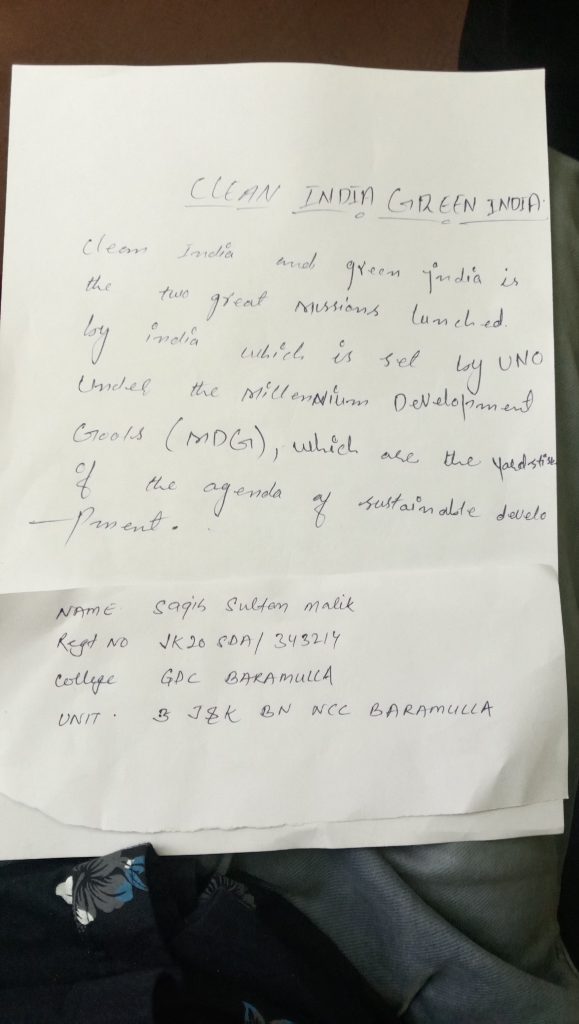 CLEAN INDIA GREEN INDIA
Clean India and green india is
the two great missions lunched.
by india which is set by UNO
Under the Millennium Development
Goals (MDG), which are the yardstise
of the agenda of sustainable develo
-pment.
NAME Saqib Sultan Malik
Regd No JK20 SDA/ 343214
College GDC BARAMULLA
UNIT. 3 J&K BN NCC BARAMULLA